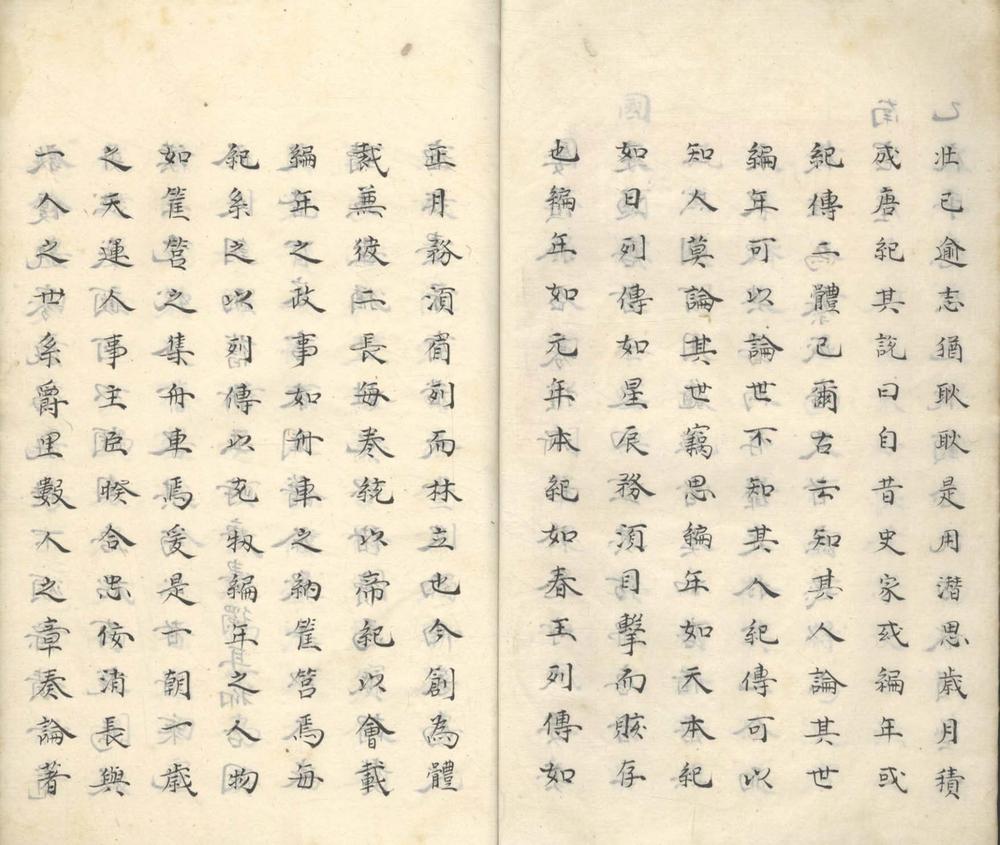 壯已逾志猶耿耿是用潜思歳月積
成唐紀其説曰自昔史家或編年或
紀傳二體已爾古云知其人論其世
編年可以論世不知其人紀傳可以
知人莫論其世竊思編年如天本紀
如日列傳如星辰務須目擊而賅存
也編年如元年本紀如春王列傳如
正月務須胥列而林立也今創為體
裁兼彼二長每卷統以帝紀以會載
編年之政事如舟車之納筐筥焉每
紀系之以列傳以充牣編年之人物
如筐筥之集舟車焉爰是一朝一歳
之天運人事主臣暌合忠佞消長與
一人之世系爵里數人之章奏論著